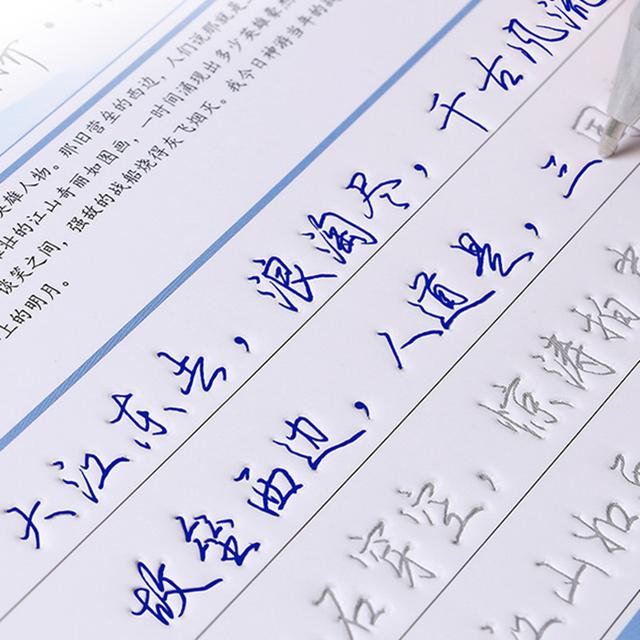 人们说那就是
英雄人物。那旧营垒的西边，
壮的江山奇丽如图画，一时间涌现出多少英雄豪
谈笑之间，强敌的战船烧得灰飞烟灭。我今日神游当年的战
上的明月。
大江东去，浪淘尽，千古风流
故垒西边，人道是，三
石穿空，惊涛拍
江山如画